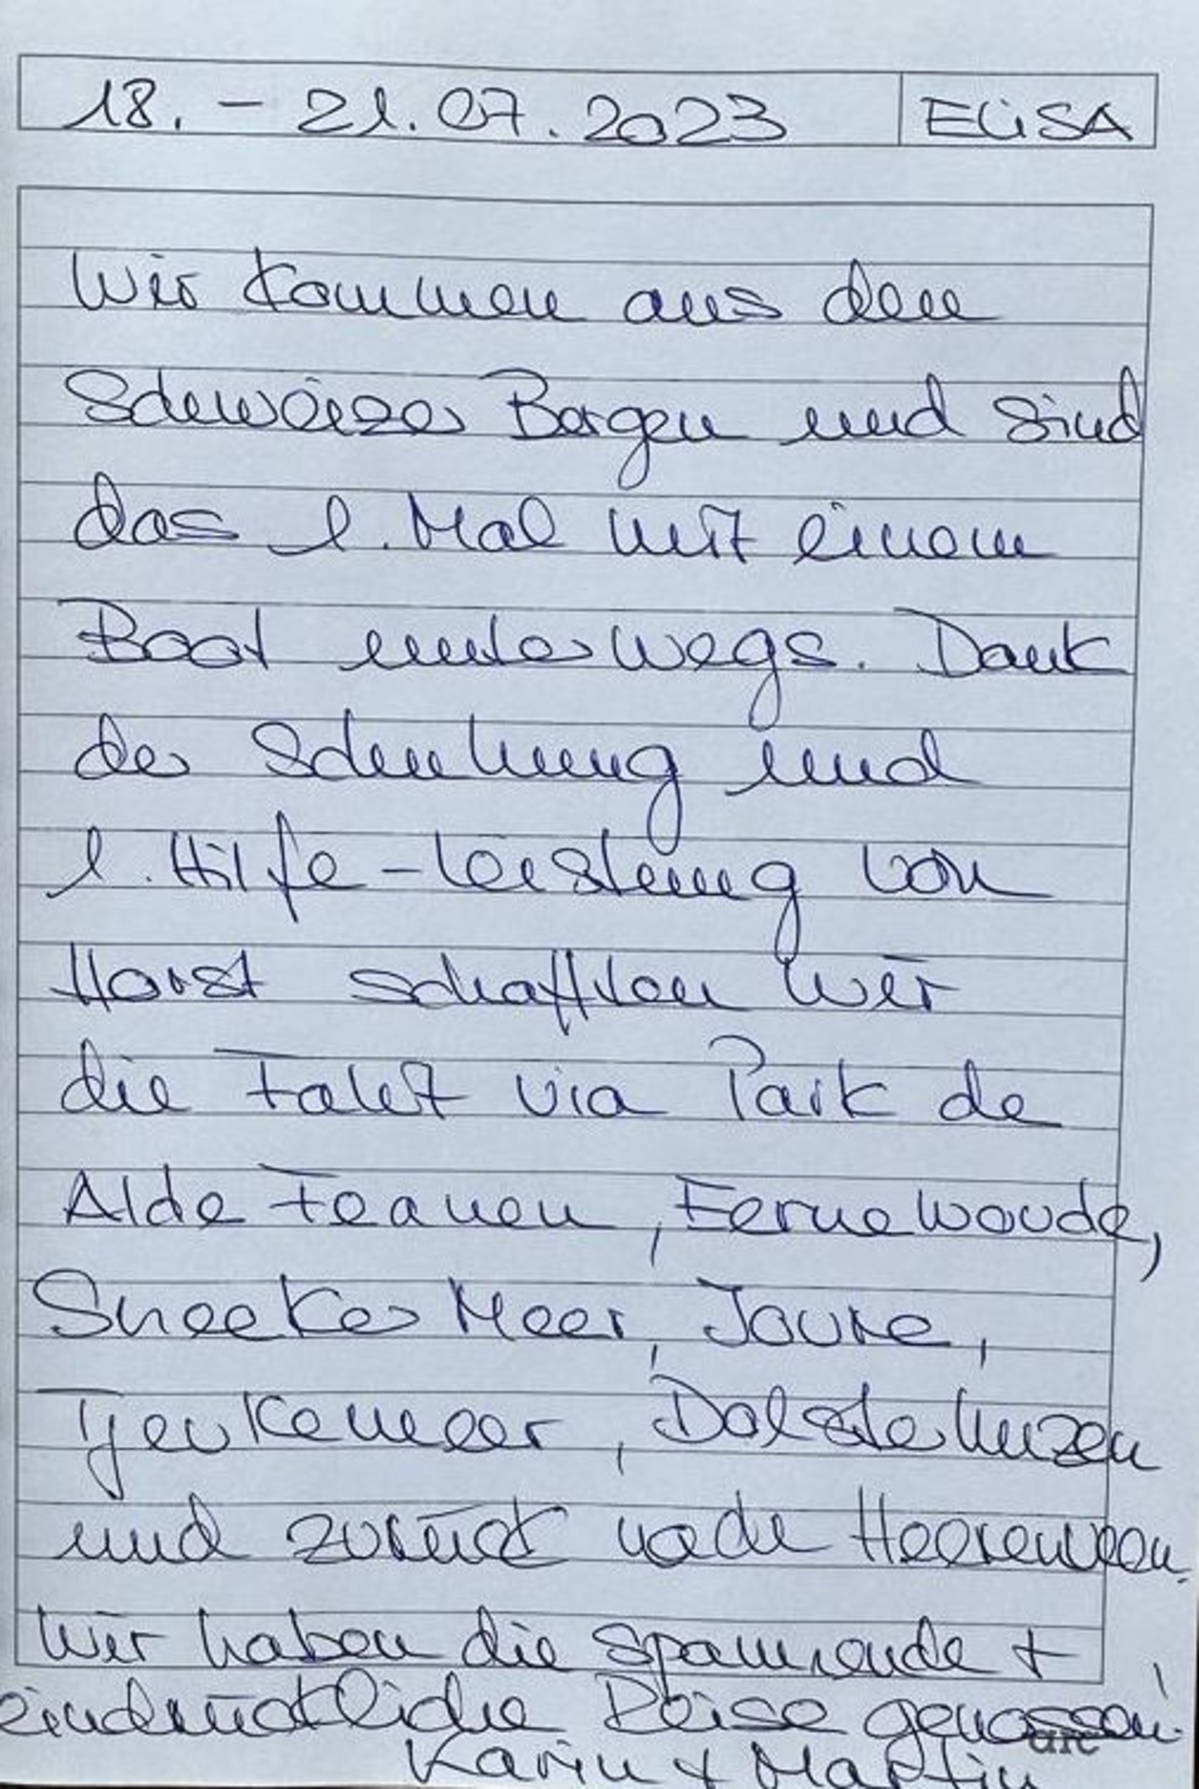 18. - 21.07.2023 ELiSA
Wir kommen aus den
Schweizer Bergen und sind
das 1. Mal mit einem
Boot unterwegs. Dank
der Schulung und
1. Hilfe-Leistung von
Horst schafften wir
die Fahrt via Park de
Alde Feanen, Fernewoude,
Sneeker Meer, Joure,
Tjeukemeer, Dolsterhuzen
und zurück nach Heerenveen.
Wir haben die spannende +
eindrückliche Reise genossen.
Karin + Martin